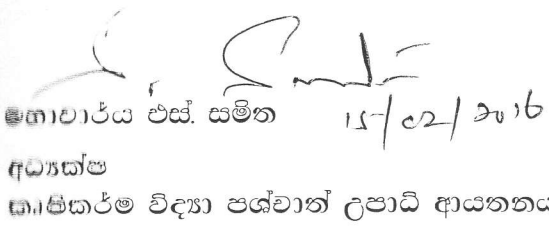 මහාචාර්ය එස්. සමිත 15/02/2016
අධ්‍යක්ෂ
කෘෂිකර්ම විද්‍යා පශ්චාත් උපාධි ආයතනය